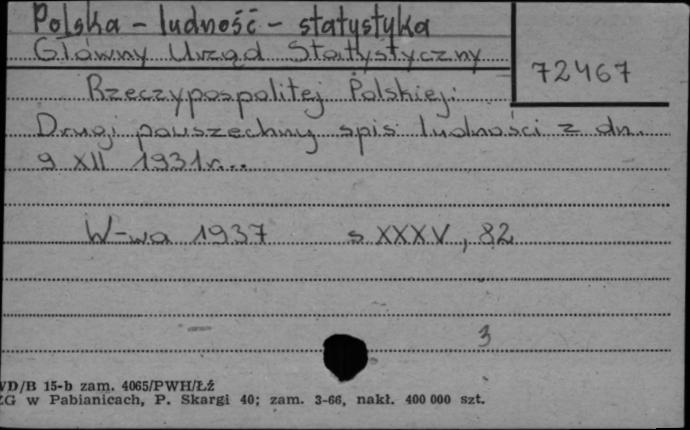 Polska - ludność - statystyka
Główny Urząd Statystyczny
72467
Rzeczypospolitej Polskiej:
Drugi powszechny spis ludności z dn.
9 XII 1931r...
W-wa 1937 s XXXV, 82
3
VD/B 15-b zam. 4065/PWH/Łź
ZG w Pabianicach, P. Skargi 40; zam. 3-66, nakł. 400 000 szt.